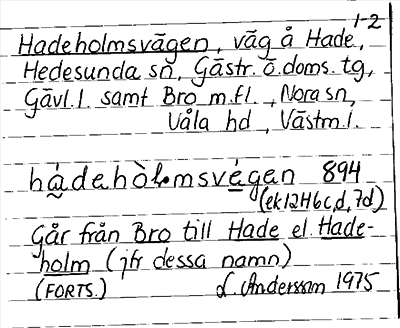 1-2
Hadeholmsvägen, väg å Hade,
Hedesunda sn, Gästr. ö. doms. tg,
Gävl. l. samt Bro m.fl., Nora sn,
Våla hd, Västm. l.
hàdehòlmsvégen 894
(ek 12H6c,d, 7d)
Går från Bro till Hade el. Hade-
holm (jfr dessa namn)
(FORTS.) L. Andersson 1975